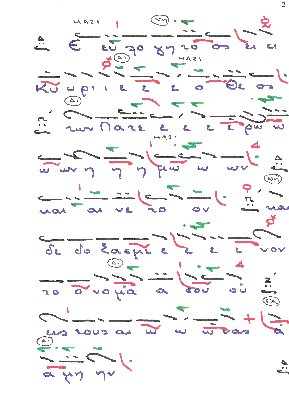 ΜΑΖΙ
Ε ευ λο γη το ος ει ει
ΜΑΖΙ
Κυ υ ρι ι ε ε ε ο Θε ος
των Πα τε ε ε ε ε ρω ω
ΜΑΖΙ
ω ων η η η μω ω ων
και αι νε το ον και
δε δο ξα σμε ε ε ε ε νον
το ο νο μα α σου ου
εις τους αι ω ω ω νας α
α μη ην